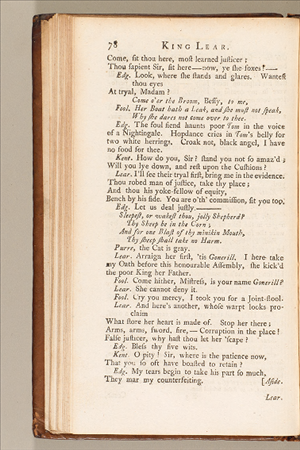 78 KING LEAR.
Come, sit thou here, most learned justicer;
Thou sapient Sir, sit here——now, ye she foxes!——
Edg. Look, where she stands and glares. Wantest
thou eyes
At tryal, Madam?
Come o'er the Broom, Bessy, to me,
Fool. Her Boat hath a Leak, and she must not speak,
Why she dares not come over to thee.
Edg. The foul fiend haunts poor Tom in the voice
of a Nightingale. Hopdance cries in Tom's belly for
two white herrings. Croak not, black angel, I have
no food for thee.
Kent. How do you, Sir? stand you not so amaz'd;
Will you lye down, and rest upon the Cushions?
Lear. I'll see their tryal first, bring me in the evidence.
Thou robed man of justice, take thy place;
And thou his yoke-fellow of equity,
Bench by his side. You are o'th' commission, sit you too.
Edg. Let us deal justly.——
Sleepest, or wakest thou, jolly Shepherd?
Thy Sheep be in the Corn;
And for one Blast of thy minikin Mouth,
Thy sheep shall take no Harm.
Purre, the Cat is gray.
Lear. Arraign her first, 'tis Gonerill. I here take
my Oath before this honourable Assembly, she kick'd
the poor King her Father.
Fool. Come hither, Mistress, is your name Gonerill?
Lear. She cannot deny it.
Fool. Cry you mercy, I took you for a Joint-stool.
Lear. And here's another, whose warpt looks pro-
claim
What store her heart is made of. Stop her there;
Arms, arms, sword, fire,—Corruption in the place!
False justicer, why hast thou let her 'scape?
Edg. Bless thy five wits.
Kent. O pity! Sir, where is the patience now,
That you so oft have boasted to retain?
Edg. My tears begin to take his part so much,
They mar my counterfeiting. [Aside.
Lear.